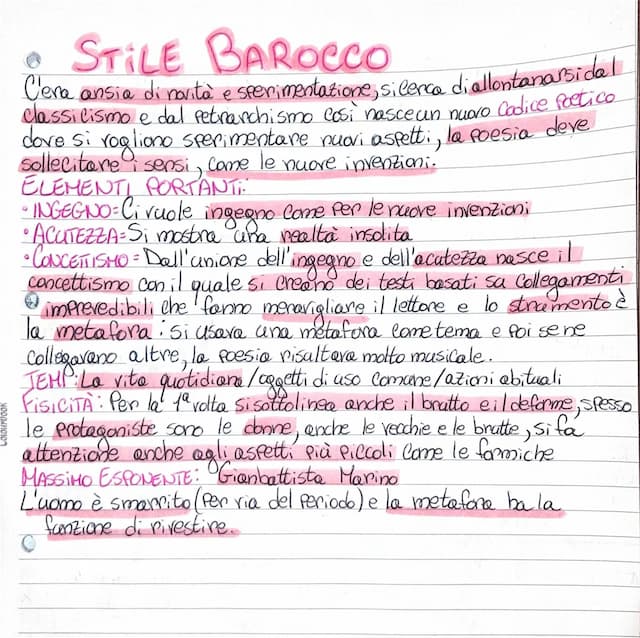 STILE BAROCCO
C'era ansia di novità e sperimentazione, si cerca di allontanarsi dal
classicismo e dal petrarchismo così nasce un nuovo codice poetico
dove si vogliono sperimentare nuovi aspetti, la poesia deve
sollecitare i sensi, come le nuove invenzioni.
ELEMENTI PORTANTI:
• INGEGNO= Ci vuole ingegno come per le nuove invenzioni
• ACUTEZZA= Si mostra una realtà insolita
• CONCETTISMO= Dall'unione dell'ingegno e dell'acutezza nasce il
concettismo con il quale si creano dei testi basati su collegamenti
imprevedibili che fanno meravigliare il lettore e lo strumento è
la metafora: si usava una metafora come tema e poi se ne
collegavano altre, la poesia risultava molto musicale.
TEMI: La vita quotidiana/oggetti di uso comune/azioni abituali
FISICITÀ: Per la 1ª volta si sottolinea anche il brutto e il deforme, spesso
le protagoniste sono le donne, anche le vecchie e le brutte, si fa
attenzione anche agli aspetti più piccoli come le formiche
MASSIMO ESPONENTE: Gianbattista Marino
L'uomo è smarrito (per via del periodo) e la metafora ha la
funzione di rivestire.